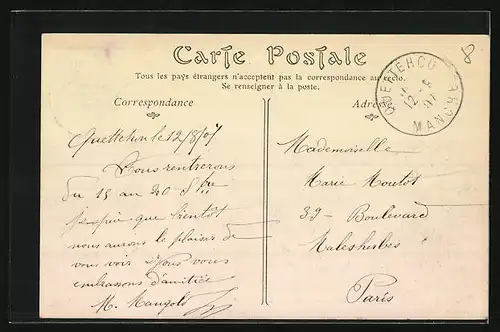 Carte Postale
Tous les pays étrangers n'acceptent pas la correspondance au recto.
Se renseigner à la poste.
Correspondance
Adresse
8
12 - 8
07
MANCHE
Quettehou le 12/8/07
Nous rentrerons
du 15 au 20 Sbre
j'espère que bientôt
nous aurons le plaisir de
vous voir. Nous vous
embrassons d'amitiés
M. Mangold
Mademoiselle
Marie Moulot
39 - Boulevard
Malesherbes
Paris